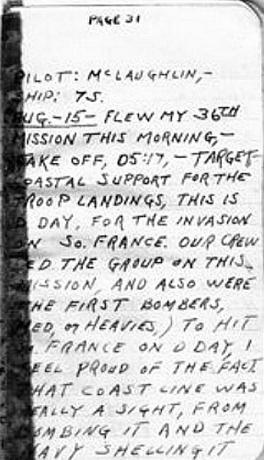 PAGE 31
PILOT: McLAUGHLIN,-
SHIP: 75.
AUG.-15- FLEW MY 36TH
MISSION THIS MORNING,-
TAKE OFF, 05:17,- TARGET-
COASTAL SUPPORT FOR THE
TROOP LANDINGS, THIS IS
D DAY, FOR THE INVASION
ON SO. FRANCE. OUR CREW
LED THE GROUP ON THIS
MISSION, AND ALSO WERE
THE FIRST BOMBERS,
MED, or HEAVIES,) TO HIT
FRANCE ON D DAY, I
FEEL PROUD OF THE FACT
THAT COAST LINE WAS
REALLY A SIGHT, FROM
BOMBING IT AND THE
NAVY SHELLING IT